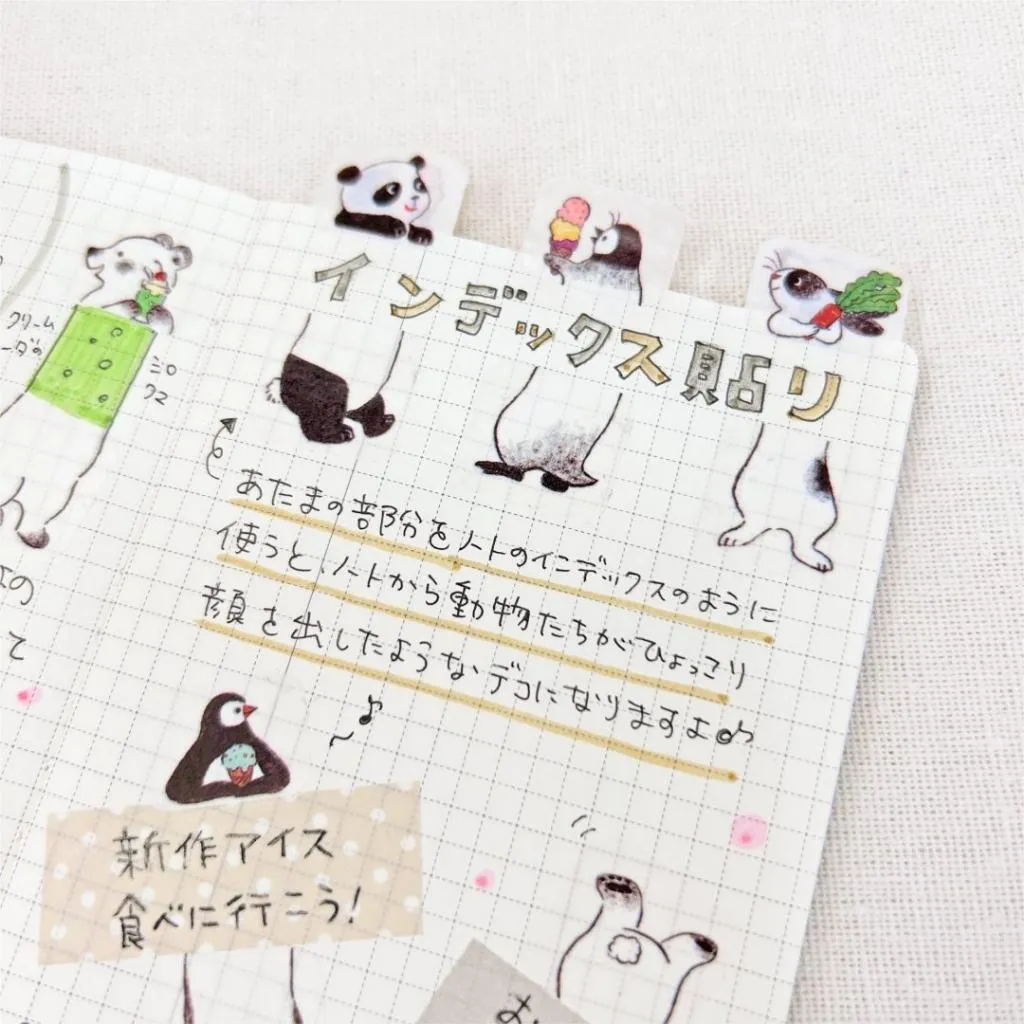 インデックス貼り
あたまの部分をノートのインデックスのように
使うと、ノートから動物たちがひょっこり
顔を出したようなデコになりますよ♪
クリーム
ーダの
シロ
クマ
の
て
新作アイス
食べに行こう!